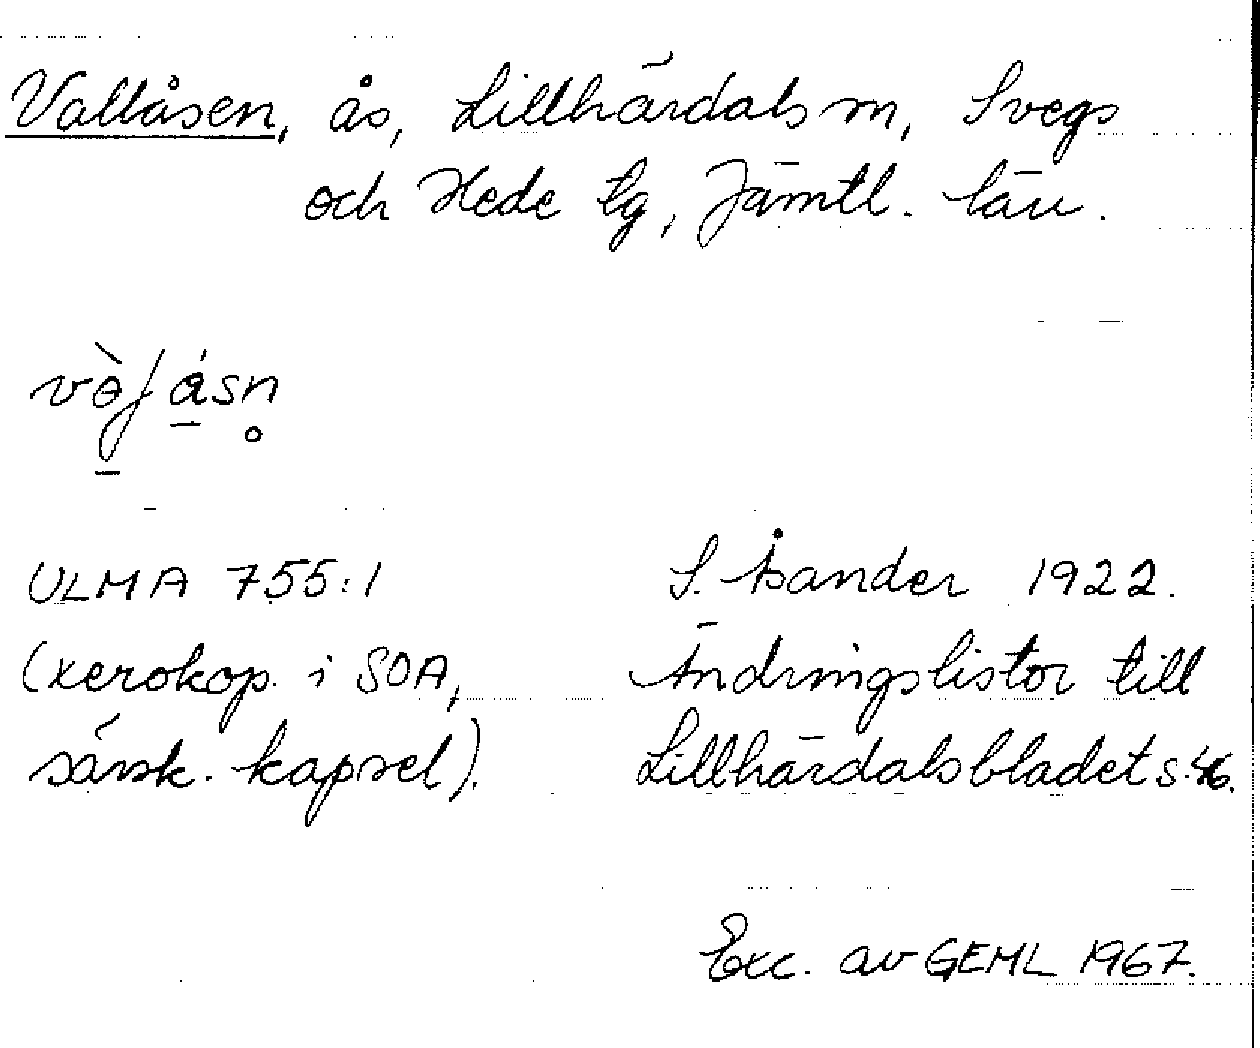 Vallåsen, ås, Lillhärdals sn, Svegs
och Hede tg, Jämtl. län.
ULMA 755:1 S. Åsander 1922.
(xerokop. i SOA, Ändringslistor till
särsk. kapsel). Lillhärdalsbladet s. 46.
Exc. av GEML 1967.